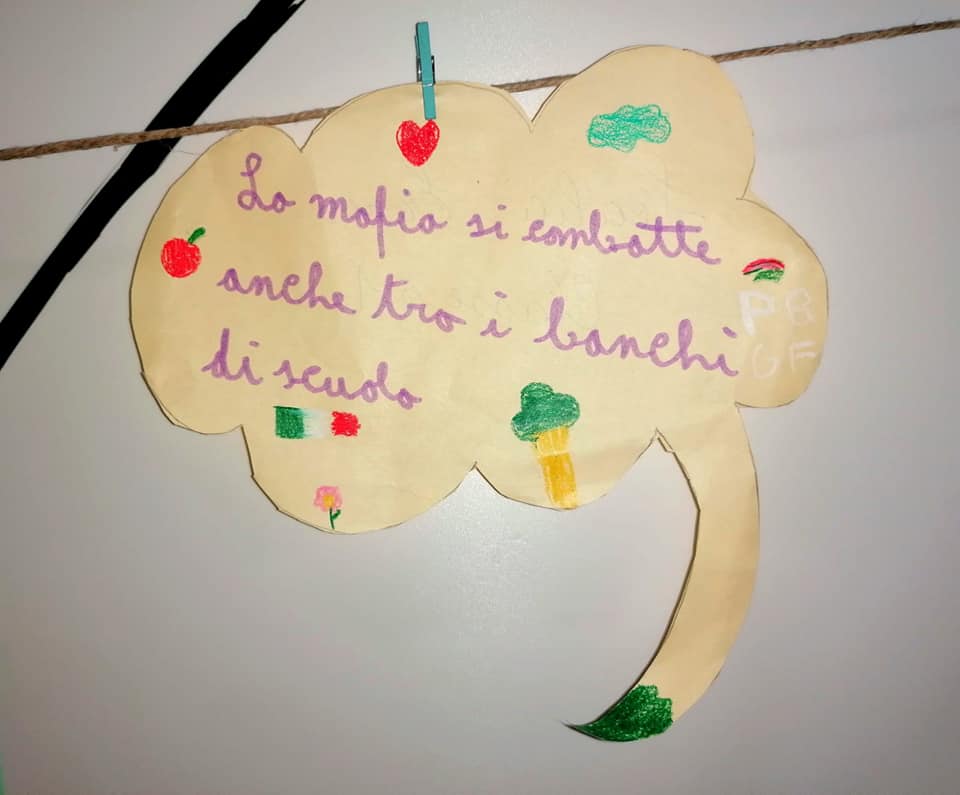 La mafia si combatte
anche tra i banchi
di scuola
P B
G F